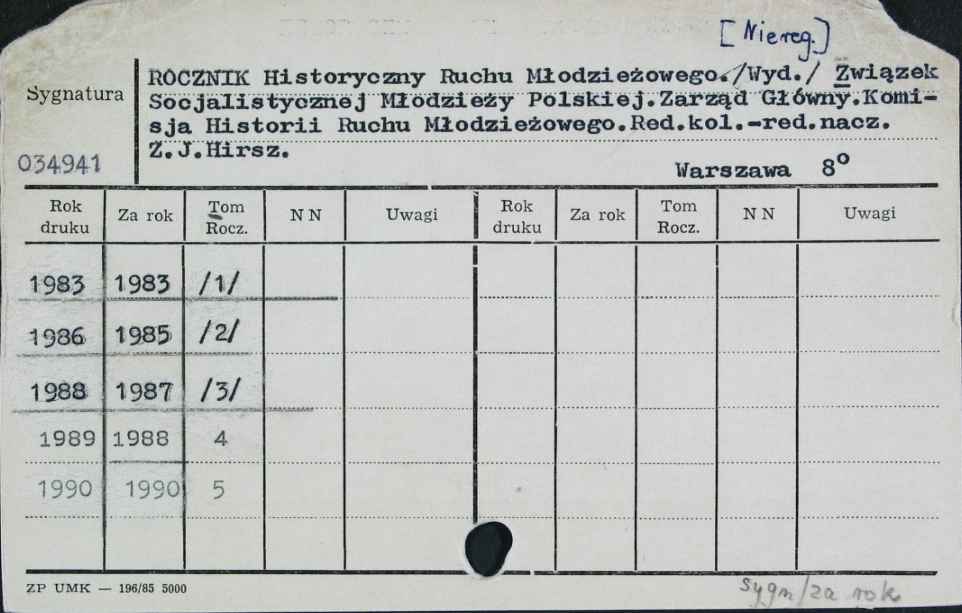 [Niereg.]
ROCZNIK Historyczny Ruchu Młodzieżowego./Wyd./ Związek
Sygnatura
Socjalistycznej Młodzieży Polskiej.Zarząd Główny.Komi-
sja Historii Ruchu Młodzieżowego.Red.kol.-red.nacz.
Z.J.Hirsz.
034941
Warszawa 8°
Rok druku Za rok Tom Rocz. NN Uwagi Rok druku Za rok Tom Rocz. NN Uwagi
1983 1983 /1/
1986 1985 /2/
1988 1987 /3/
1989 1988 4
1990 1990 5
ZP UMK — 196/85 5000
sygn/za rok